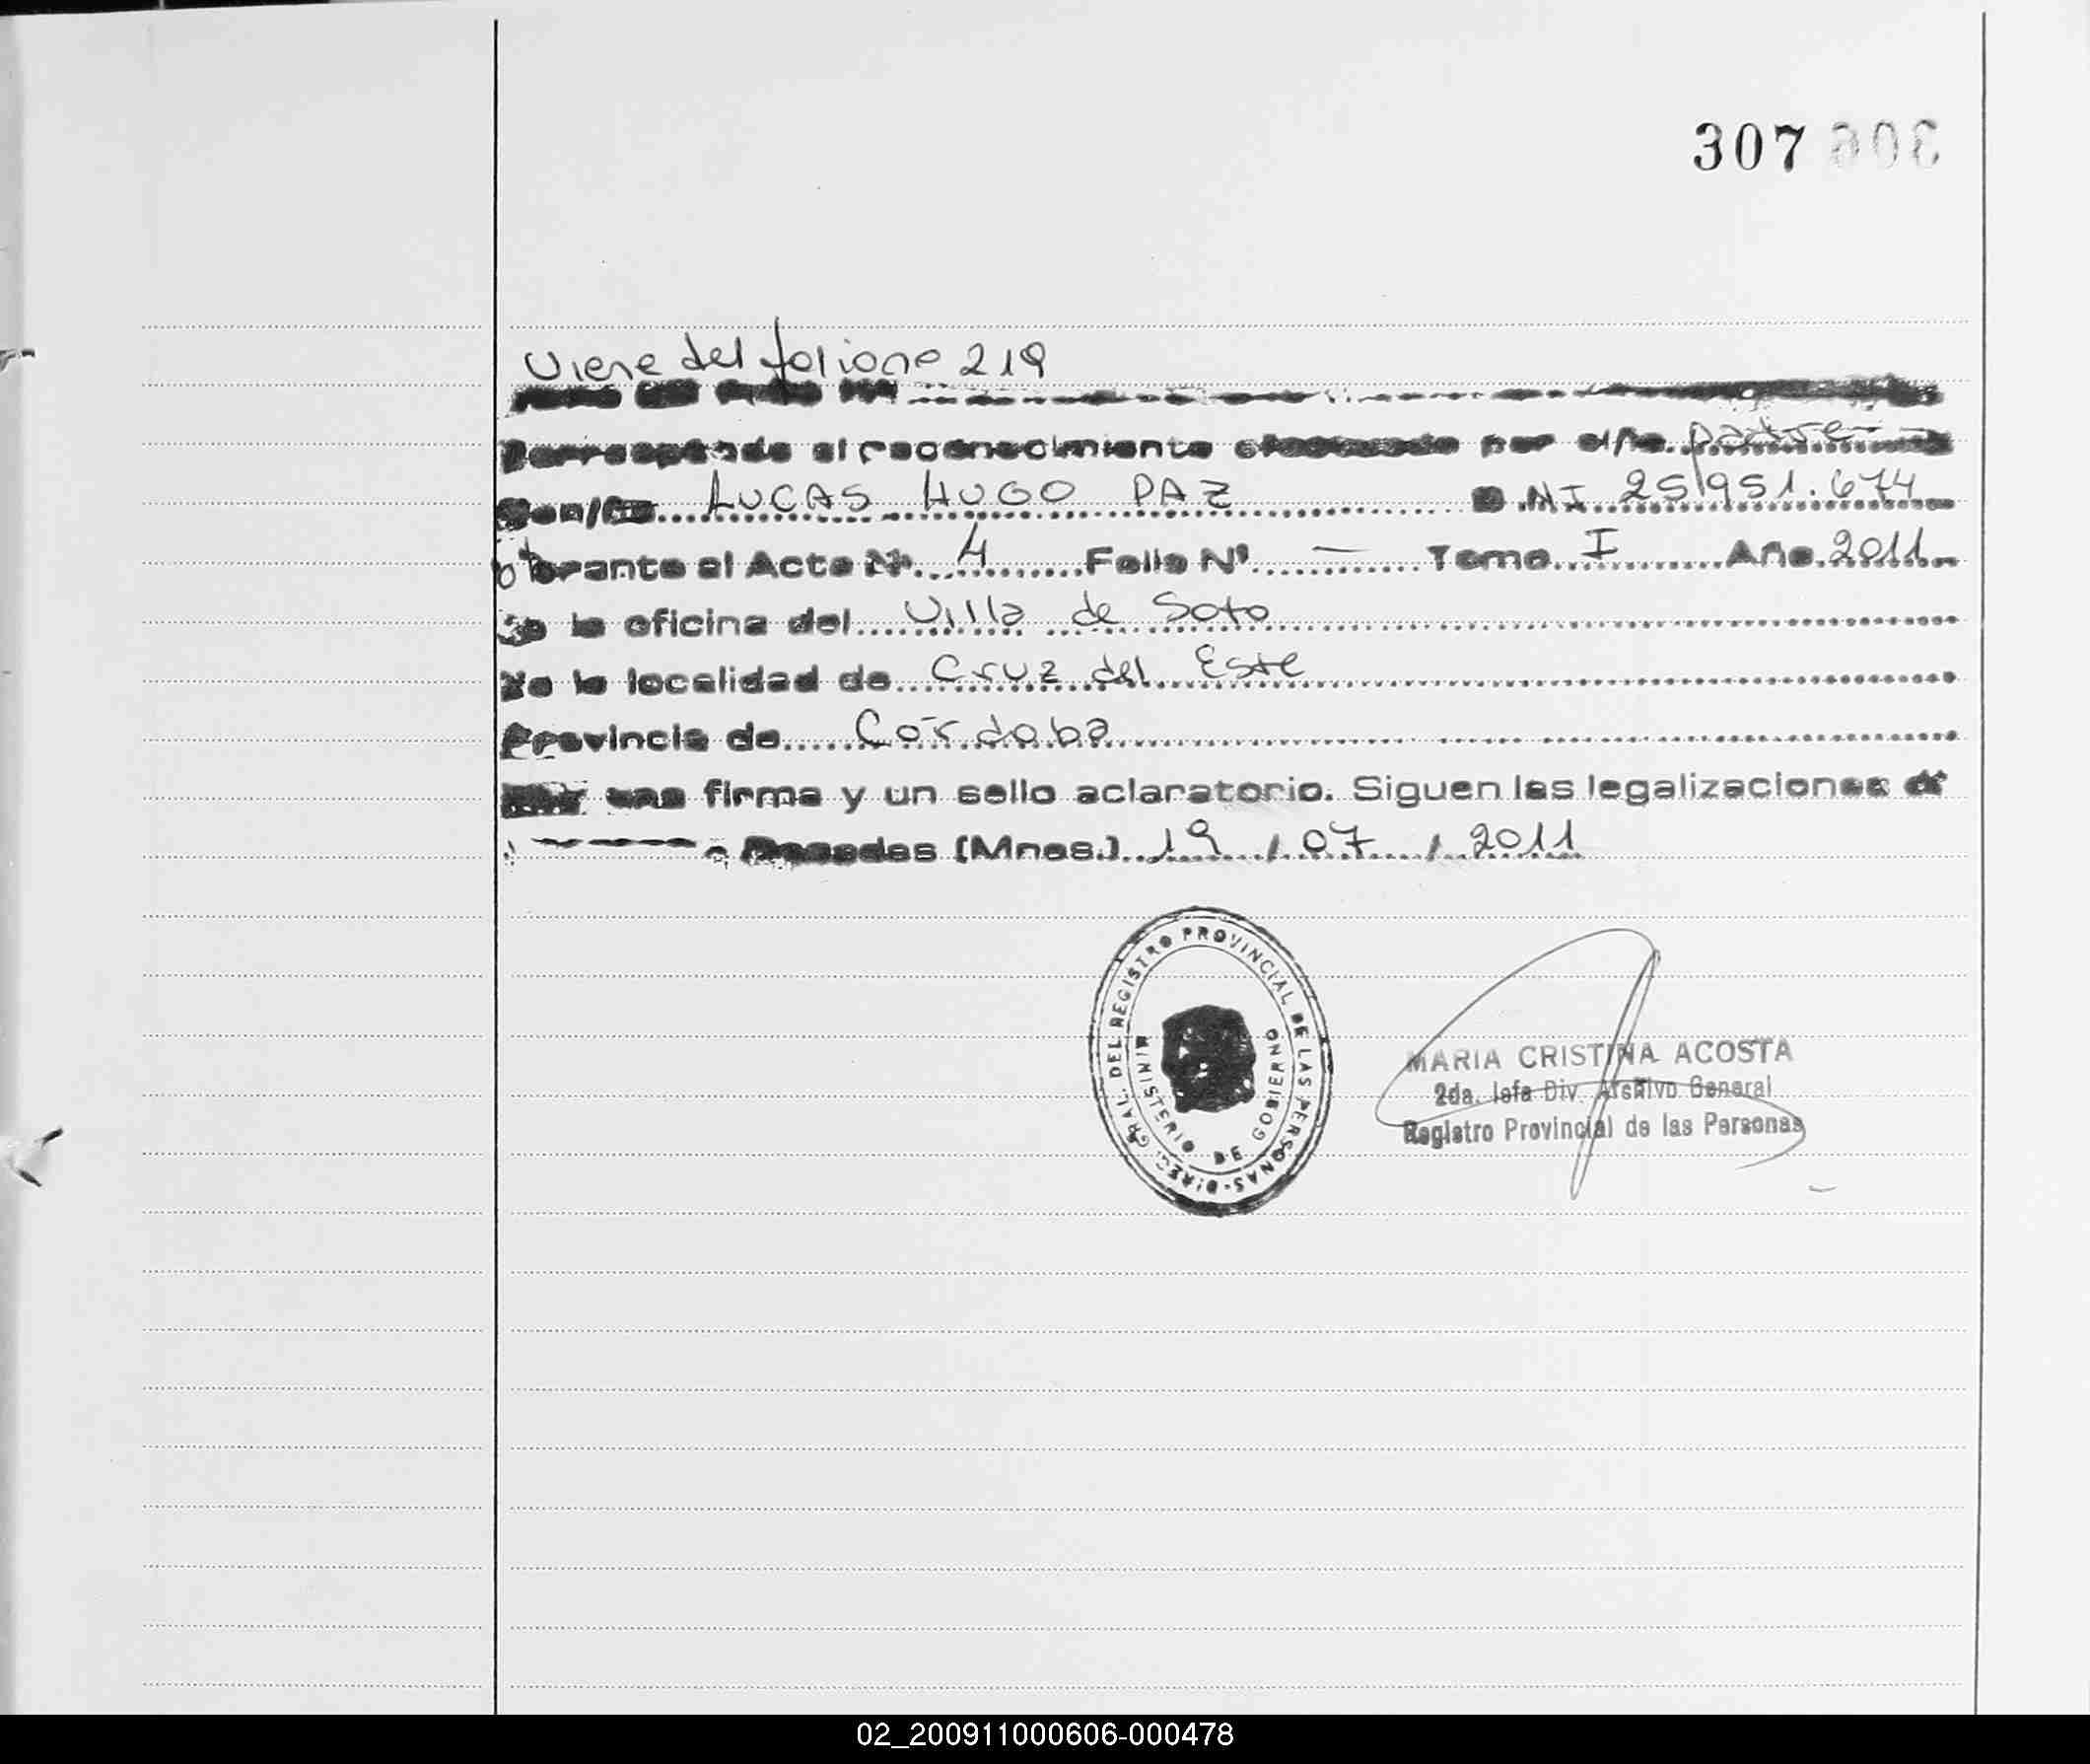 307 306
Viene del folio no 219
Corresponde al reconocimiento efectuado por el/la padre
Don/Da LUCAS HUGO PAZ D.NI 25.951.674
obrante al Acta Nº 4 Folio Nº — Tomo I Año 2011
de la oficina del Villa de Soto
de la localidad de Cruz del Este
Provincia de Córdoba
Hay una firma y un sello aclaratorio. Siguen las legalizaciones de
Posadas (Mnes.) 19 / 07 / 2011
DIREC. GRAL. DEL REGISTRO PROVINCIAL DE LAS PERSONAS
MINISTERIO DE GOBIERNO
MARIA CRISTINA ACOSTA
2da. Jefa Div. Archivo General
Registro Provincial de las Personas
02_200911000606-000478